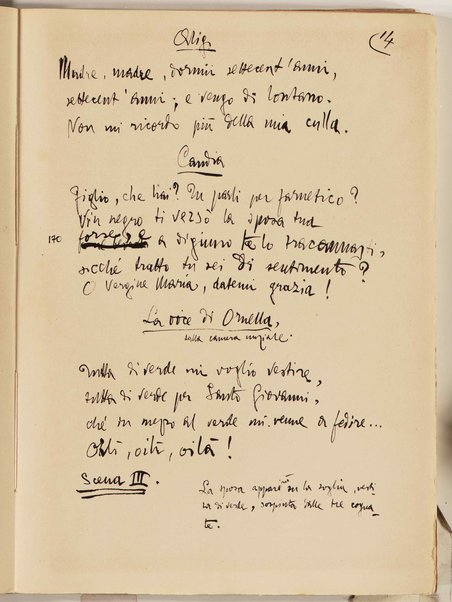 Alig.
14
Madre, madre, dormii settecent'anni,
settecent'anni; e vengo di lontano.
Non mi ricordo più della mia culla.
Candia
Figlio, che hai? Tu parli per farnetico?
Vin negro ti versò la sposa tua
170 a digiuno te lo tracannasti,
sicché tratto tu sei di sentimento?
O Vergine Maria, datemi grazia!
La voce di Ornella,
nella camera nuziale.
Tutta di verde mi voglio vestire,
tutta di verde per Santo Giovanni,
ché in mezzo al verde mi venne a fedire...
Oilì, oilì, oilà!
Scena III.
La sposa appare su la soglia, vesti-
ta di verde, sospinta dalle tre cogna-
te.